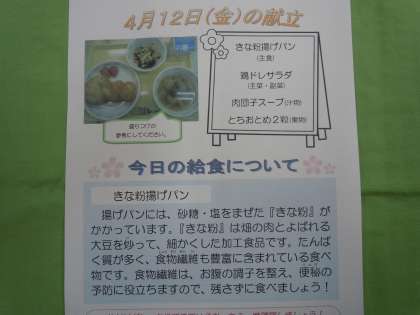 4月12日(金)の献立
きな粉揚げパン
(主食)
鶏ドレサラダ
(主菜・副菜)
肉団子スープ(汁物)
とちおとめ2粒(果物)
盛りつけの
参考にしてください。
今日の給食について
きな粉揚げパン
揚げパンには、砂糖・塩をまぜた『きな粉』が
かかっています。『きな粉』は畑の肉とよばれる
大豆を炒って、細かくした加工食品です。たんぱ
く質が多く、食物繊維も豊富に含まれている食べ
物です。食物繊維は、お腹の調子を整え、便秘の
予防に役立ちますので、残さずに食べましょう！